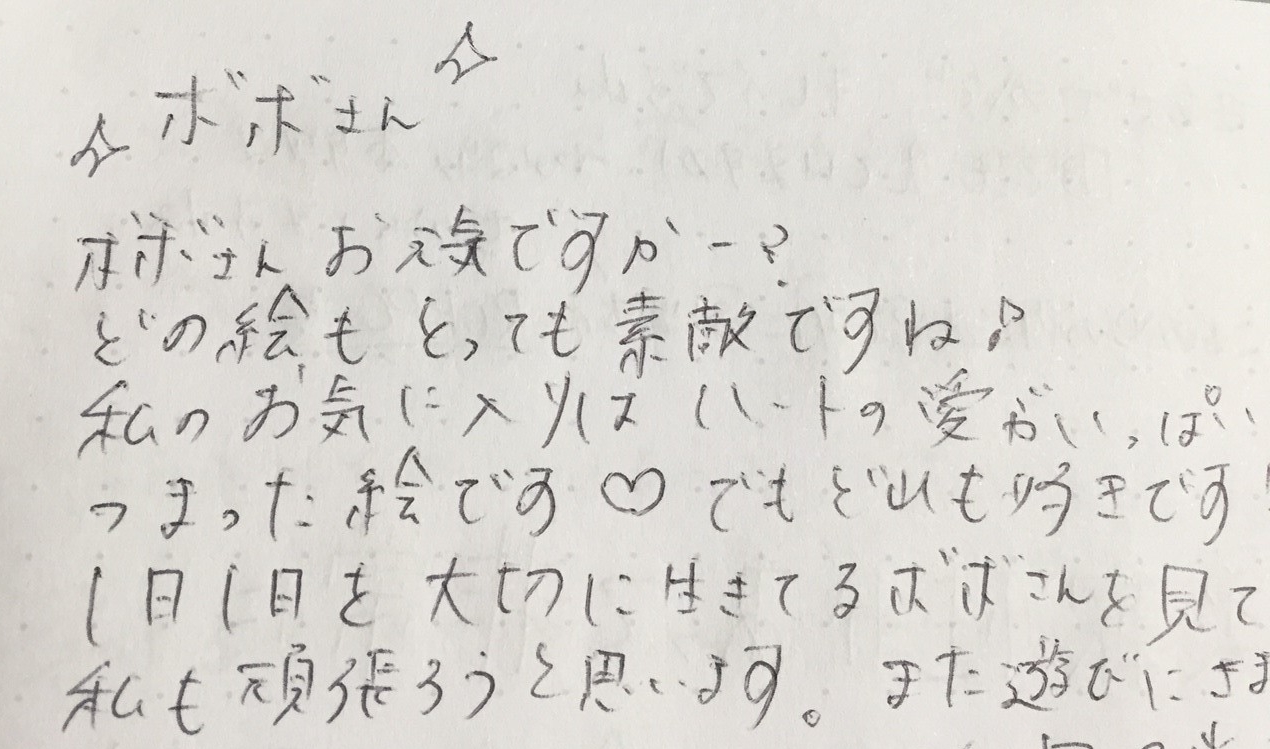 ボボさん
ボボさんお元気ですかー?
どの絵もとっても素敵ですね♪
私のお気に入りはハートの愛がいっぱい
つまった絵です♡でもどれも好きです!
1日1日を大切に生きてるボボさんを見て
私も頑張ろうと思います。また遊びにきま